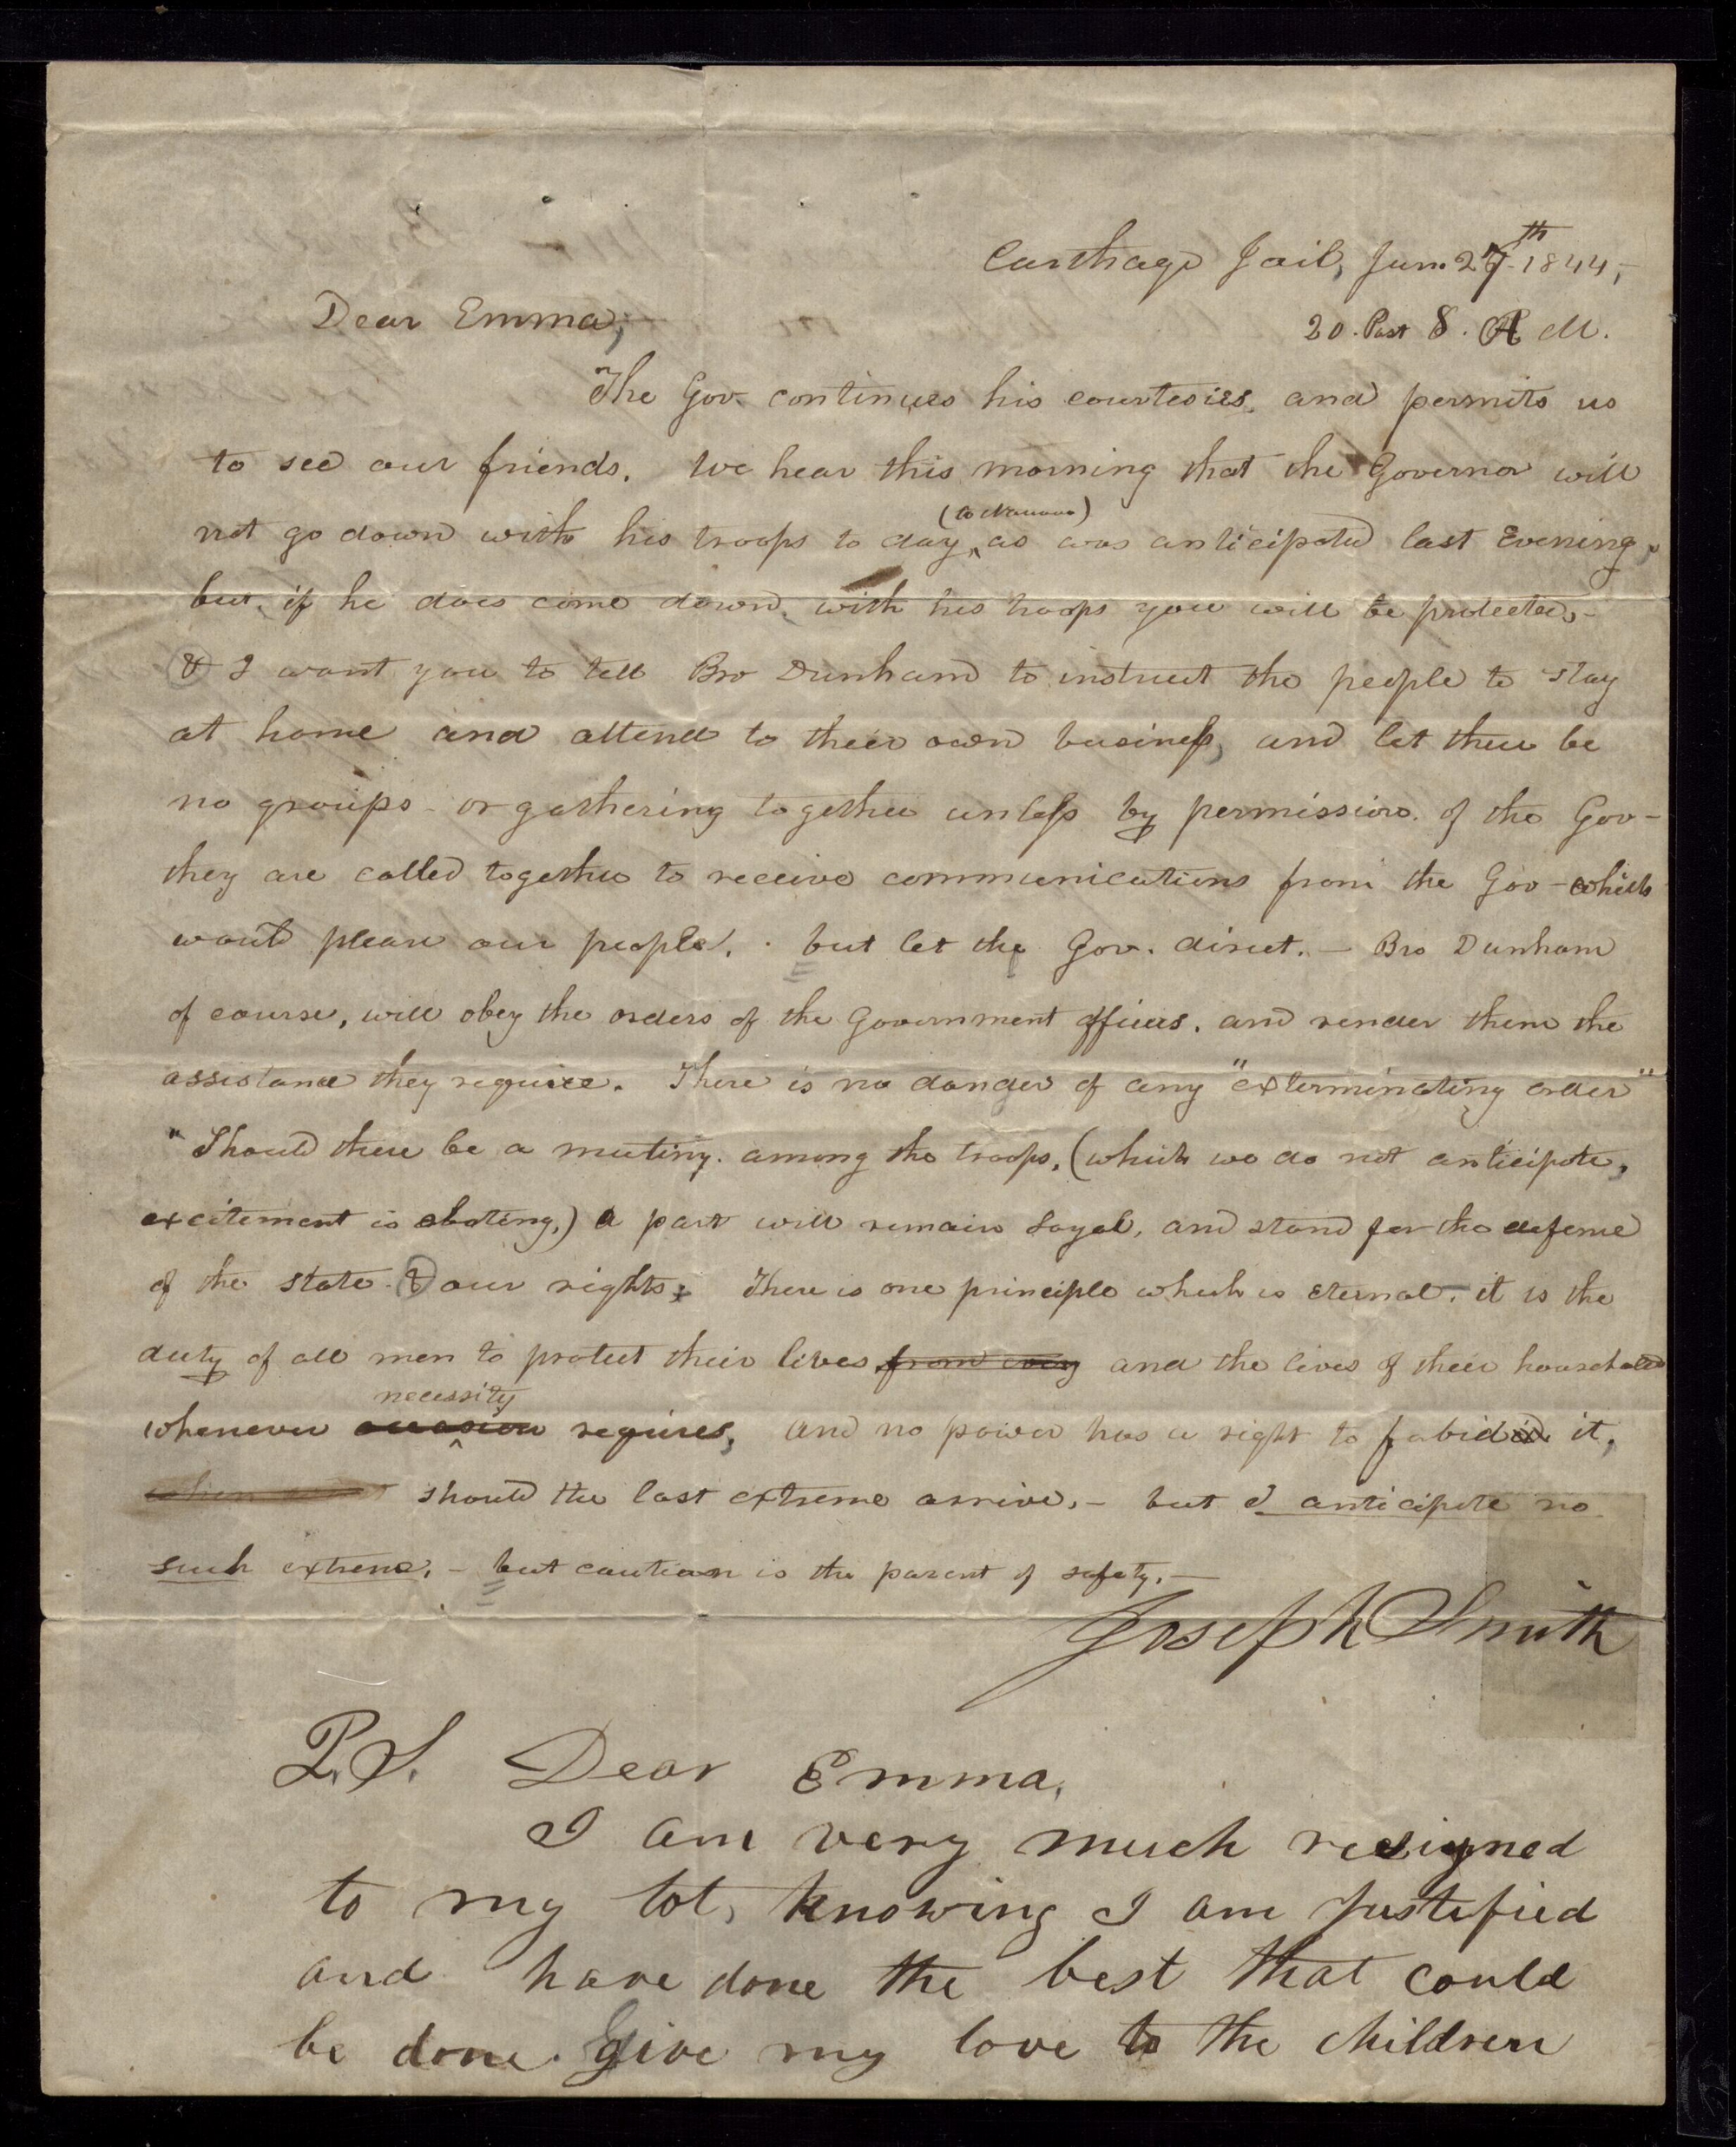 Carthage Jail, Jun. 27th 1844,—
20. Past 8. A M.
Dear Emma;—
The Gov. continues his courtesies, and permits us
to see our friends. We hear this morning that the Governor will
(to Nauvoo)
not go down with his troops to day, as was anticipated last Evening,
but, if he does come down, with his troops you will be protected,—
& I want you to tell Bro Dunham to instruct the people to stay
at home and attend to their own business, and let there be
no groups or gathering together unless by permission of the Gov—
they are called together to receive communications from the Gov — which
would please our people, but let the Gov. direct. — Bro Dunham
of course, will obey the orders of the Government officers, and render them the
assistance they require. There is no danger of any "exterminating order"
Should there be a mutiny among the troops, (which we do not anticipate,
excitement is abating,) a part will remain loyal, and stand for the defence
of the state & our rights; There is one principle which is Eternal, it is the
duty of all men to protect their lives from every and the lives of their household
necessity
whenever occasion requires, and no power has a right to forbid it,
should the last extreme arrive, — but I anticipate no
such extreme, — but caution is the parent of safety. —
Joseph Smith
P.S. Dear Emma,
I am very much resigned
to my lot, knowing I am Justified
and have done the best that could
be done Give my love to the children